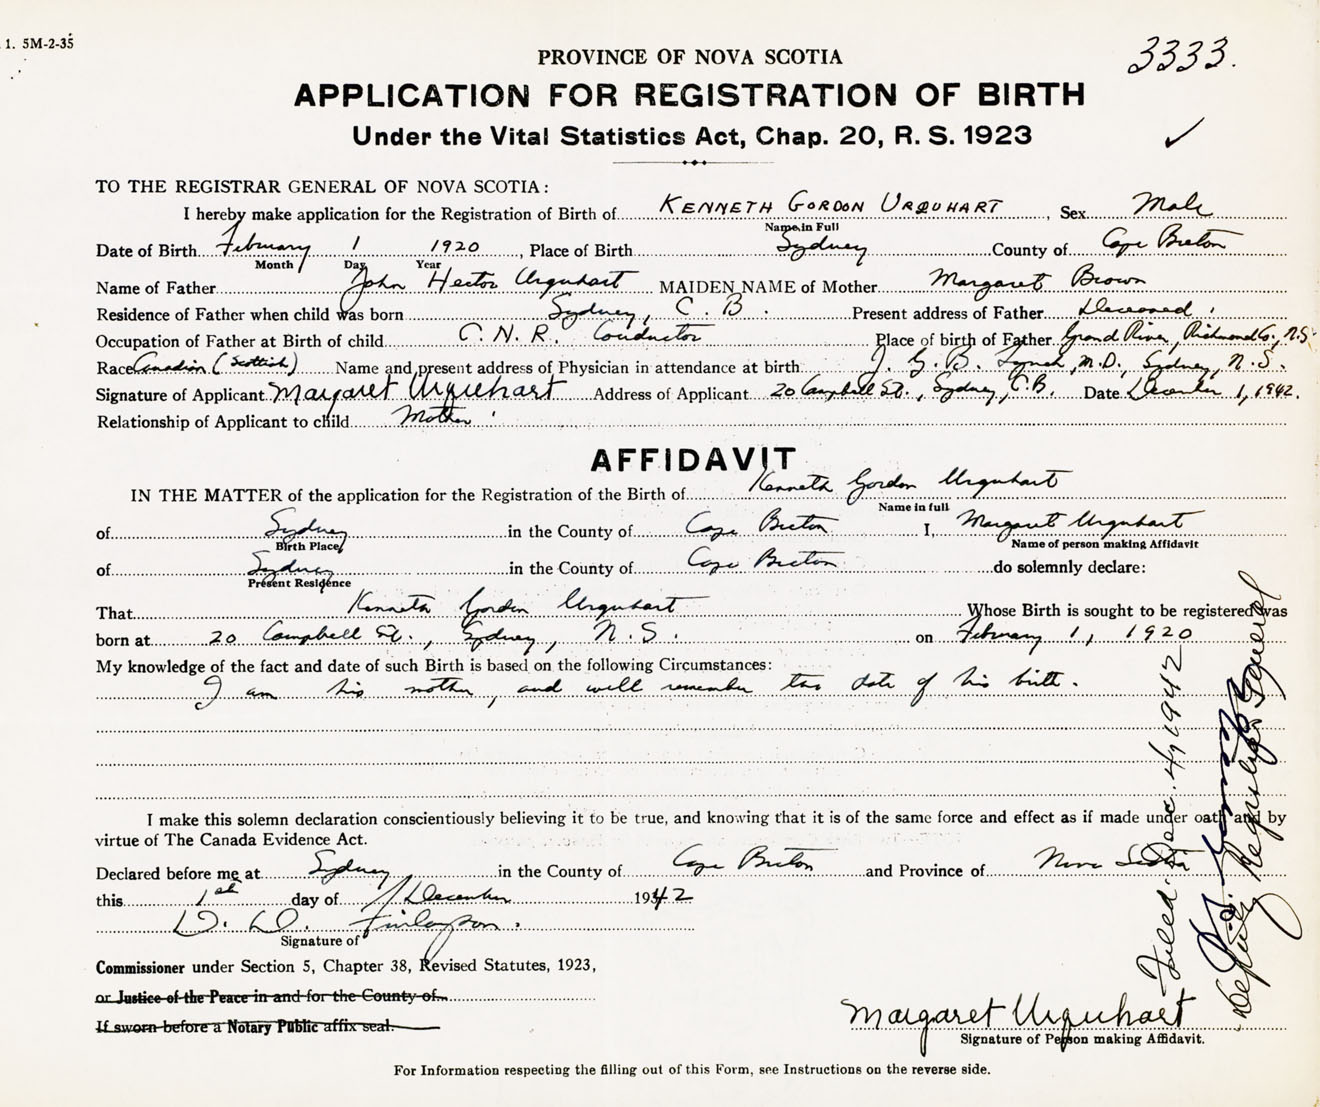 1. 5M-2-35
3333.
PROVINCE OF NOVA SCOTIA
APPLICATION FOR REGISTRATION OF BIRTH
Under the Vital Statistics Act, Chap. 20, R. S. 1923
✓
TO THE REGISTRAR GENERAL OF NOVA SCOTIA:
I hereby make application for the Registration of Birth of KENNETH GORDON URQUHART, Sex Male
Name in Full
Date of Birth February 1 1920, Place of Birth Sydney County of Cape Breton
Month Day Year
Name of Father John Hector Urquhart MAIDEN NAME of Mother Margaret Brown
Residence of Father when child was born Sydney, C. B. Present address of Father Deceased.
Occupation of Father at Birth of child C. N. R. Conductor Place of birth of Father Grand River, Richmond Co., N.S.
Race Canadian (Scottish) Name and present address of Physician in attendance at birth J. G. B. Lynch, M.D., Sydney, N.S.
Signature of Applicant Margaret Urquehart Address of Applicant 20 Campbell St., Sydney, C.B. Date December 1, 1942.
Relationship of Applicant to child Mother.
AFFIDAVIT
IN THE MATTER of the application for the Registration of the Birth of Kenneth Gordon Urquhart
Name in full
of Sydney in the County of Cape Breton I, Margaret Urquhart
Birth Place Name of person making Affidavit
of Sydney in the County of Cape Breton do solemnly declare:
Present Residence
That Kenneth Gordon Urquhart Whose Birth is sought to be registered was
born at 20 Campbell St., Sydney, N.S. on February 1, 1920
My knowledge of the fact and date of such Birth is based on the following Circumstances:
I am his mother, and will remember the date of his birth.
I make this solemn declaration conscientiously believing it to be true, and knowing that it is of the same force and effect as if made under oath and by
virtue of The Canada Evidence Act.
Declared before me at Sydney in the County of Cape Breton and Province of Nova Scotia
this 1st day of December 1942
D. D. Finlayson.
Signature of
Commissioner under Section 5, Chapter 38, Revised Statutes, 1923,
or Justice of the Peace in and for the County of
If sworn before a Notary Public affix seal.
Margaret Urquhart
Signature of Person making Affidavit.
For Information respecting the filling out of this Form, see Instructions on the reverse side.
Filed: Dec. 4, 1942
Deputy Registrar General